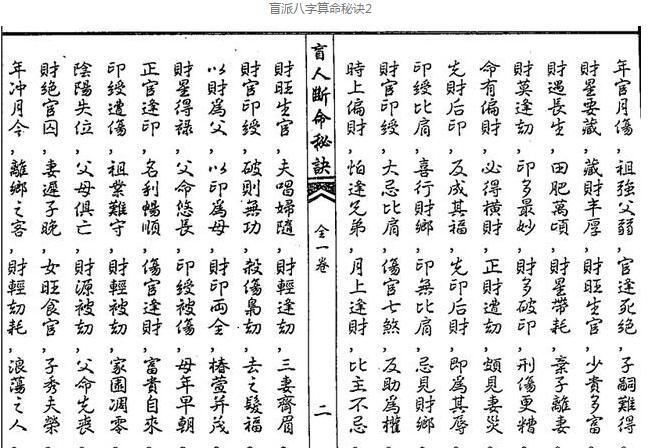 盲派八字算命秘诀2
年官月傷，祖強父弱，官逢死絶，子嗣難得
財星要藏，藏財丰厚，財旺生官，少貴多富
財遇長生，田肥萬頃，財星帶耗，棄子離妻
財莫逢劫，印多最妙，財多破印，刑傷更糟
命有偏財，必得横財，正財遭劫，頗見妻災
先財后印，反成其福，先印后財，即爲其辱
印綬比肩，喜行財鄉，印無比肩，忌見財鄉
財官印綬，大忌比肩，傷官七煞，反助爲權
時上偏財，怕逢兄弟，月上逢財，比主不忌
盲人斷命秘訣
全一卷
二
財旺生官，夫唱婦隨，財輕逢劫，三妻齊眉
財官印綬，破則無功，殺傷梟劫，去之髮福
以財爲父，以印爲母，財印兩全，椿萱并茂
財星得祿，父命悠長，印綬被傷，母年早朝
正官逢印，名利暢順，傷官逢財，富貴自來
印綬遭傷，祖業難守，財輕被劫，家園凋零
陰陽失位，父母俱亡，財源被劫，父命先喪
財絕官囚，妻遲子晚，女旺食官，子秀夫榮
年冲月令，離鄉之客，財輕劫耗，浪蕩之人